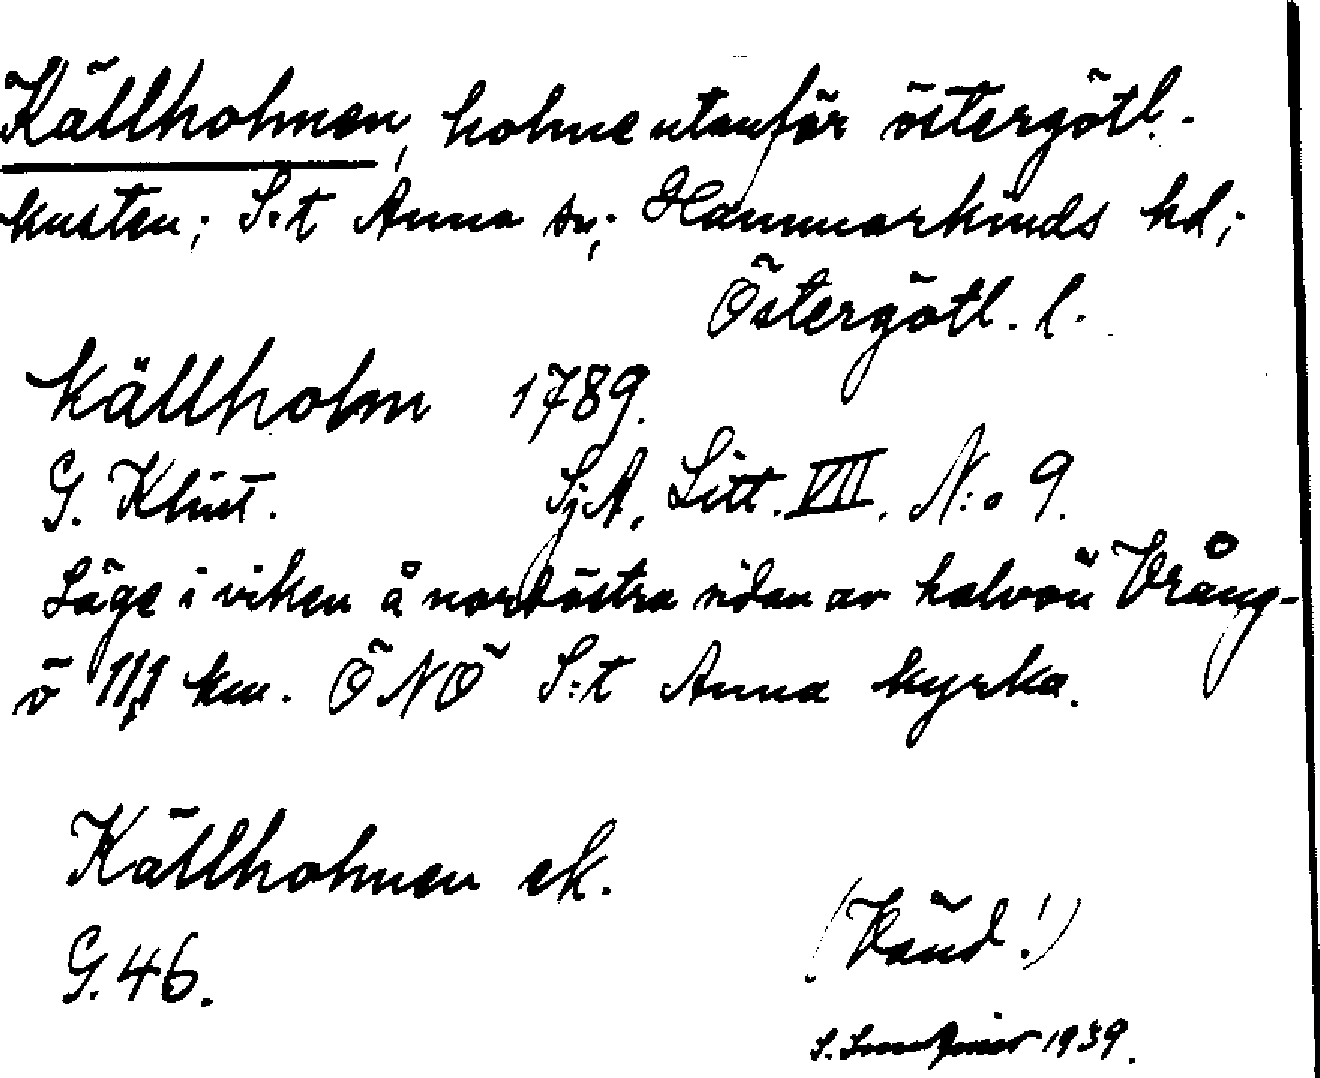 Källholmen, holme utanför östergötl.-
kusten; S:t Anna sn; Hammarkinds hd;
Östergötl. l.
Källholm 1789.
G. Klint. SjA, Litt. VII. N:o 9.
Läge i viken å nordöstra sidan av halvön Vrång-
ö km. ÖNÖ S:t Anna kyrka.
Källholmen ek.
G. 46.
(Vänd!)
S. 1939.